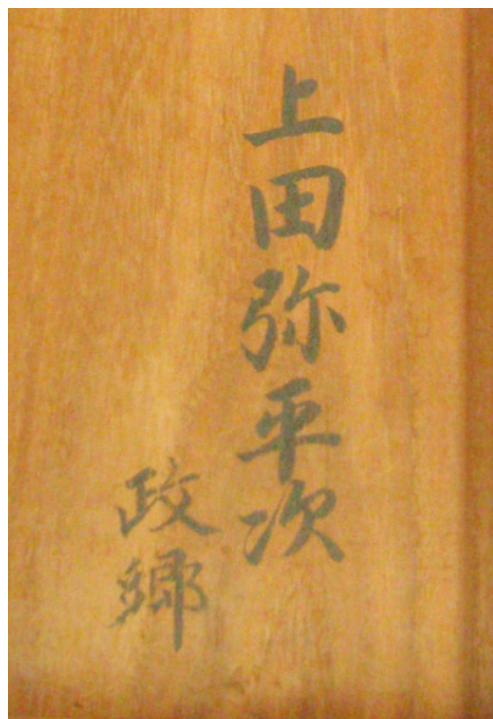 上田弥平次
政郷